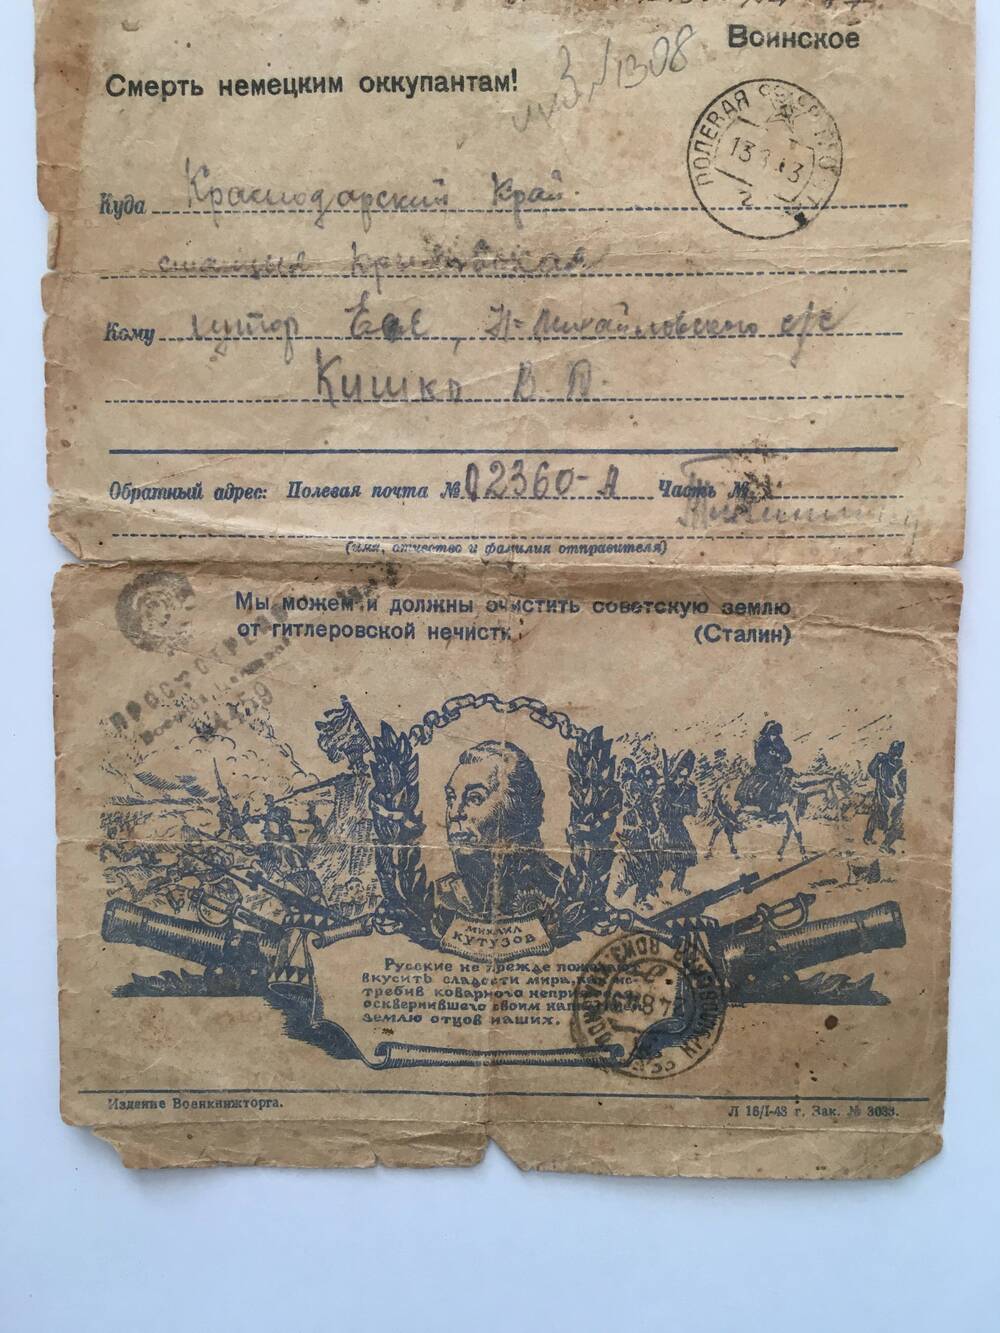 Воинское
Смерть немецким оккупантам!
1308
ПОЛЕВАЯ
Куда Краснодарский Край
станция Крыловская
Кому хутор Ея, Н-Михайловского с/с
Кишко В. П.
Обратный адрес: Полевая почта № 02360-А Часть №
(имя, отчество и фамилия отправителя)
Мы можем и должны очистить советскую землю
от гитлеровской нечисти. (Сталин)
ПРОСМОТРЕНО
МИХАИЛ
КУТУЗОВ
Русские не прежде пожелают
вкусить сладости мира, как ис-
требив коварного неприятеля,
осквернившего своим нашествием
землю отцов наших.
Издание Военкнижторга.
Л 16/I-43 г. Зак. № 3033.